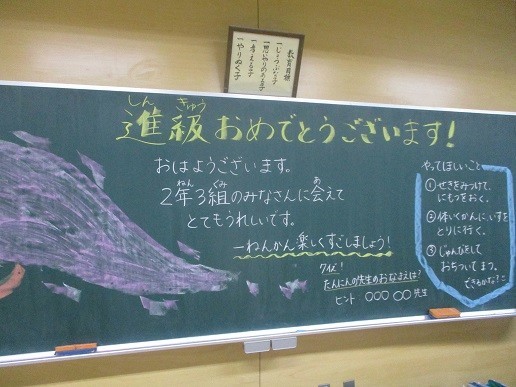 教育目標
一 じょうぶな子
一 思いやりのある子
一 考える子
一 やりぬく子
しん きゅう
進級おめでとうございます!
おはようございます。
ねん くみ あ
2年3組のみなさんに会えて
とてもうれしいです。
一ねんかん楽しくすごしましょう!
クイズ!
たんにんの先生のおなまえは!
ヒント ○○○ ○○先生
やってほしいこと
①せきをみつけて、
にもつをおく。
②体いくかんに、いすを
とりに行く。
③じゅんびをして
おちついてまつ。
できるかな?